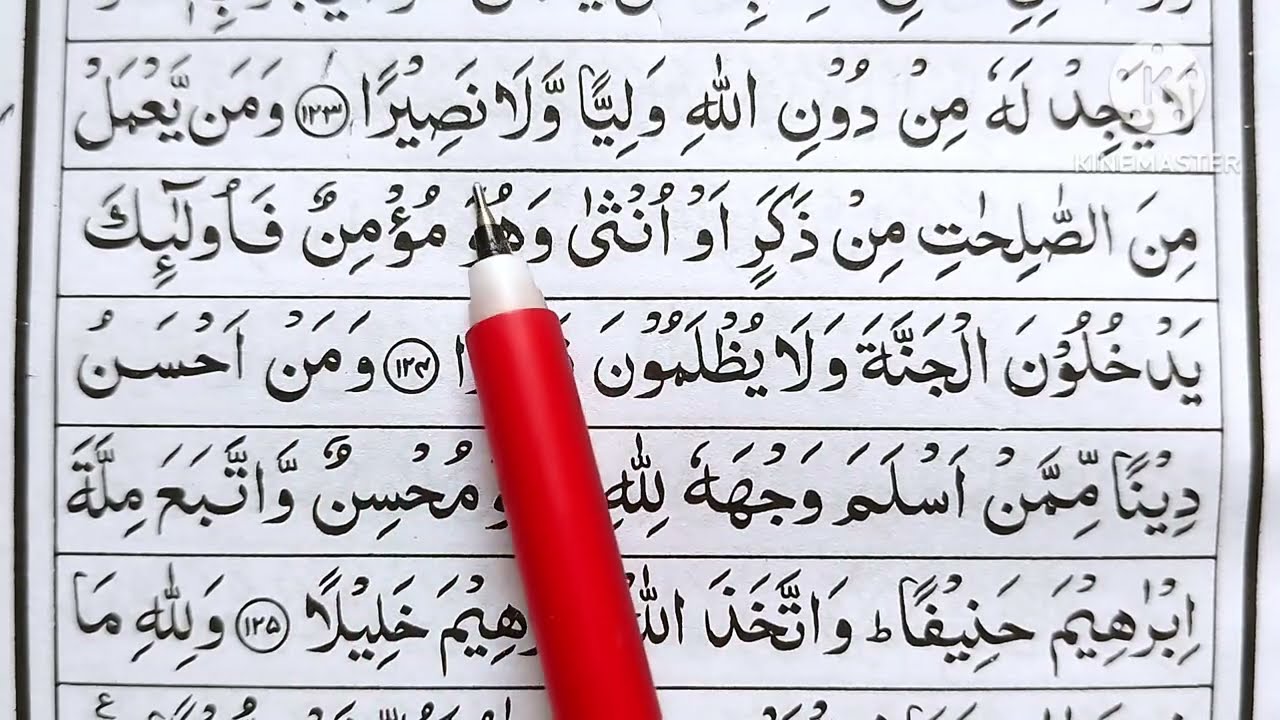 وَلَا يَجِدْ لَهٗ مِنْ دُوْنِ اللّٰهِ وَلِيًّا وَّلَا نَصِيْرًا ۝۱۲۳ وَمَنْ يَّعْمَلْ
مِنَ الصّٰلِحٰتِ مِنْ ذَكَرٍ اَوْ اُنْثٰى وَهُوَ مُؤْمِنٌ فَاُولٰٓئِكَ
يَدْخُلُوْنَ الْجَنَّةَ وَلَا يُظْلَمُوْنَ ۝۱۲۴ وَمَنْ اَحْسَنُ
دِيْنًا مِّمَّنْ اَسْلَمَ وَجْهَهٗ لِلّٰهِ مُحْسِنٌ وَّاتَّبَعَ مِلَّةَ
اِبْرٰهِيْمَ حَنِيْفًا ؕ وَاتَّخَذَ اللّٰهُ اِبْرٰهِيْمَ خَلِيْلًا ۝۱۲۵ وَلِلّٰهِ مَا
KINEMASTER